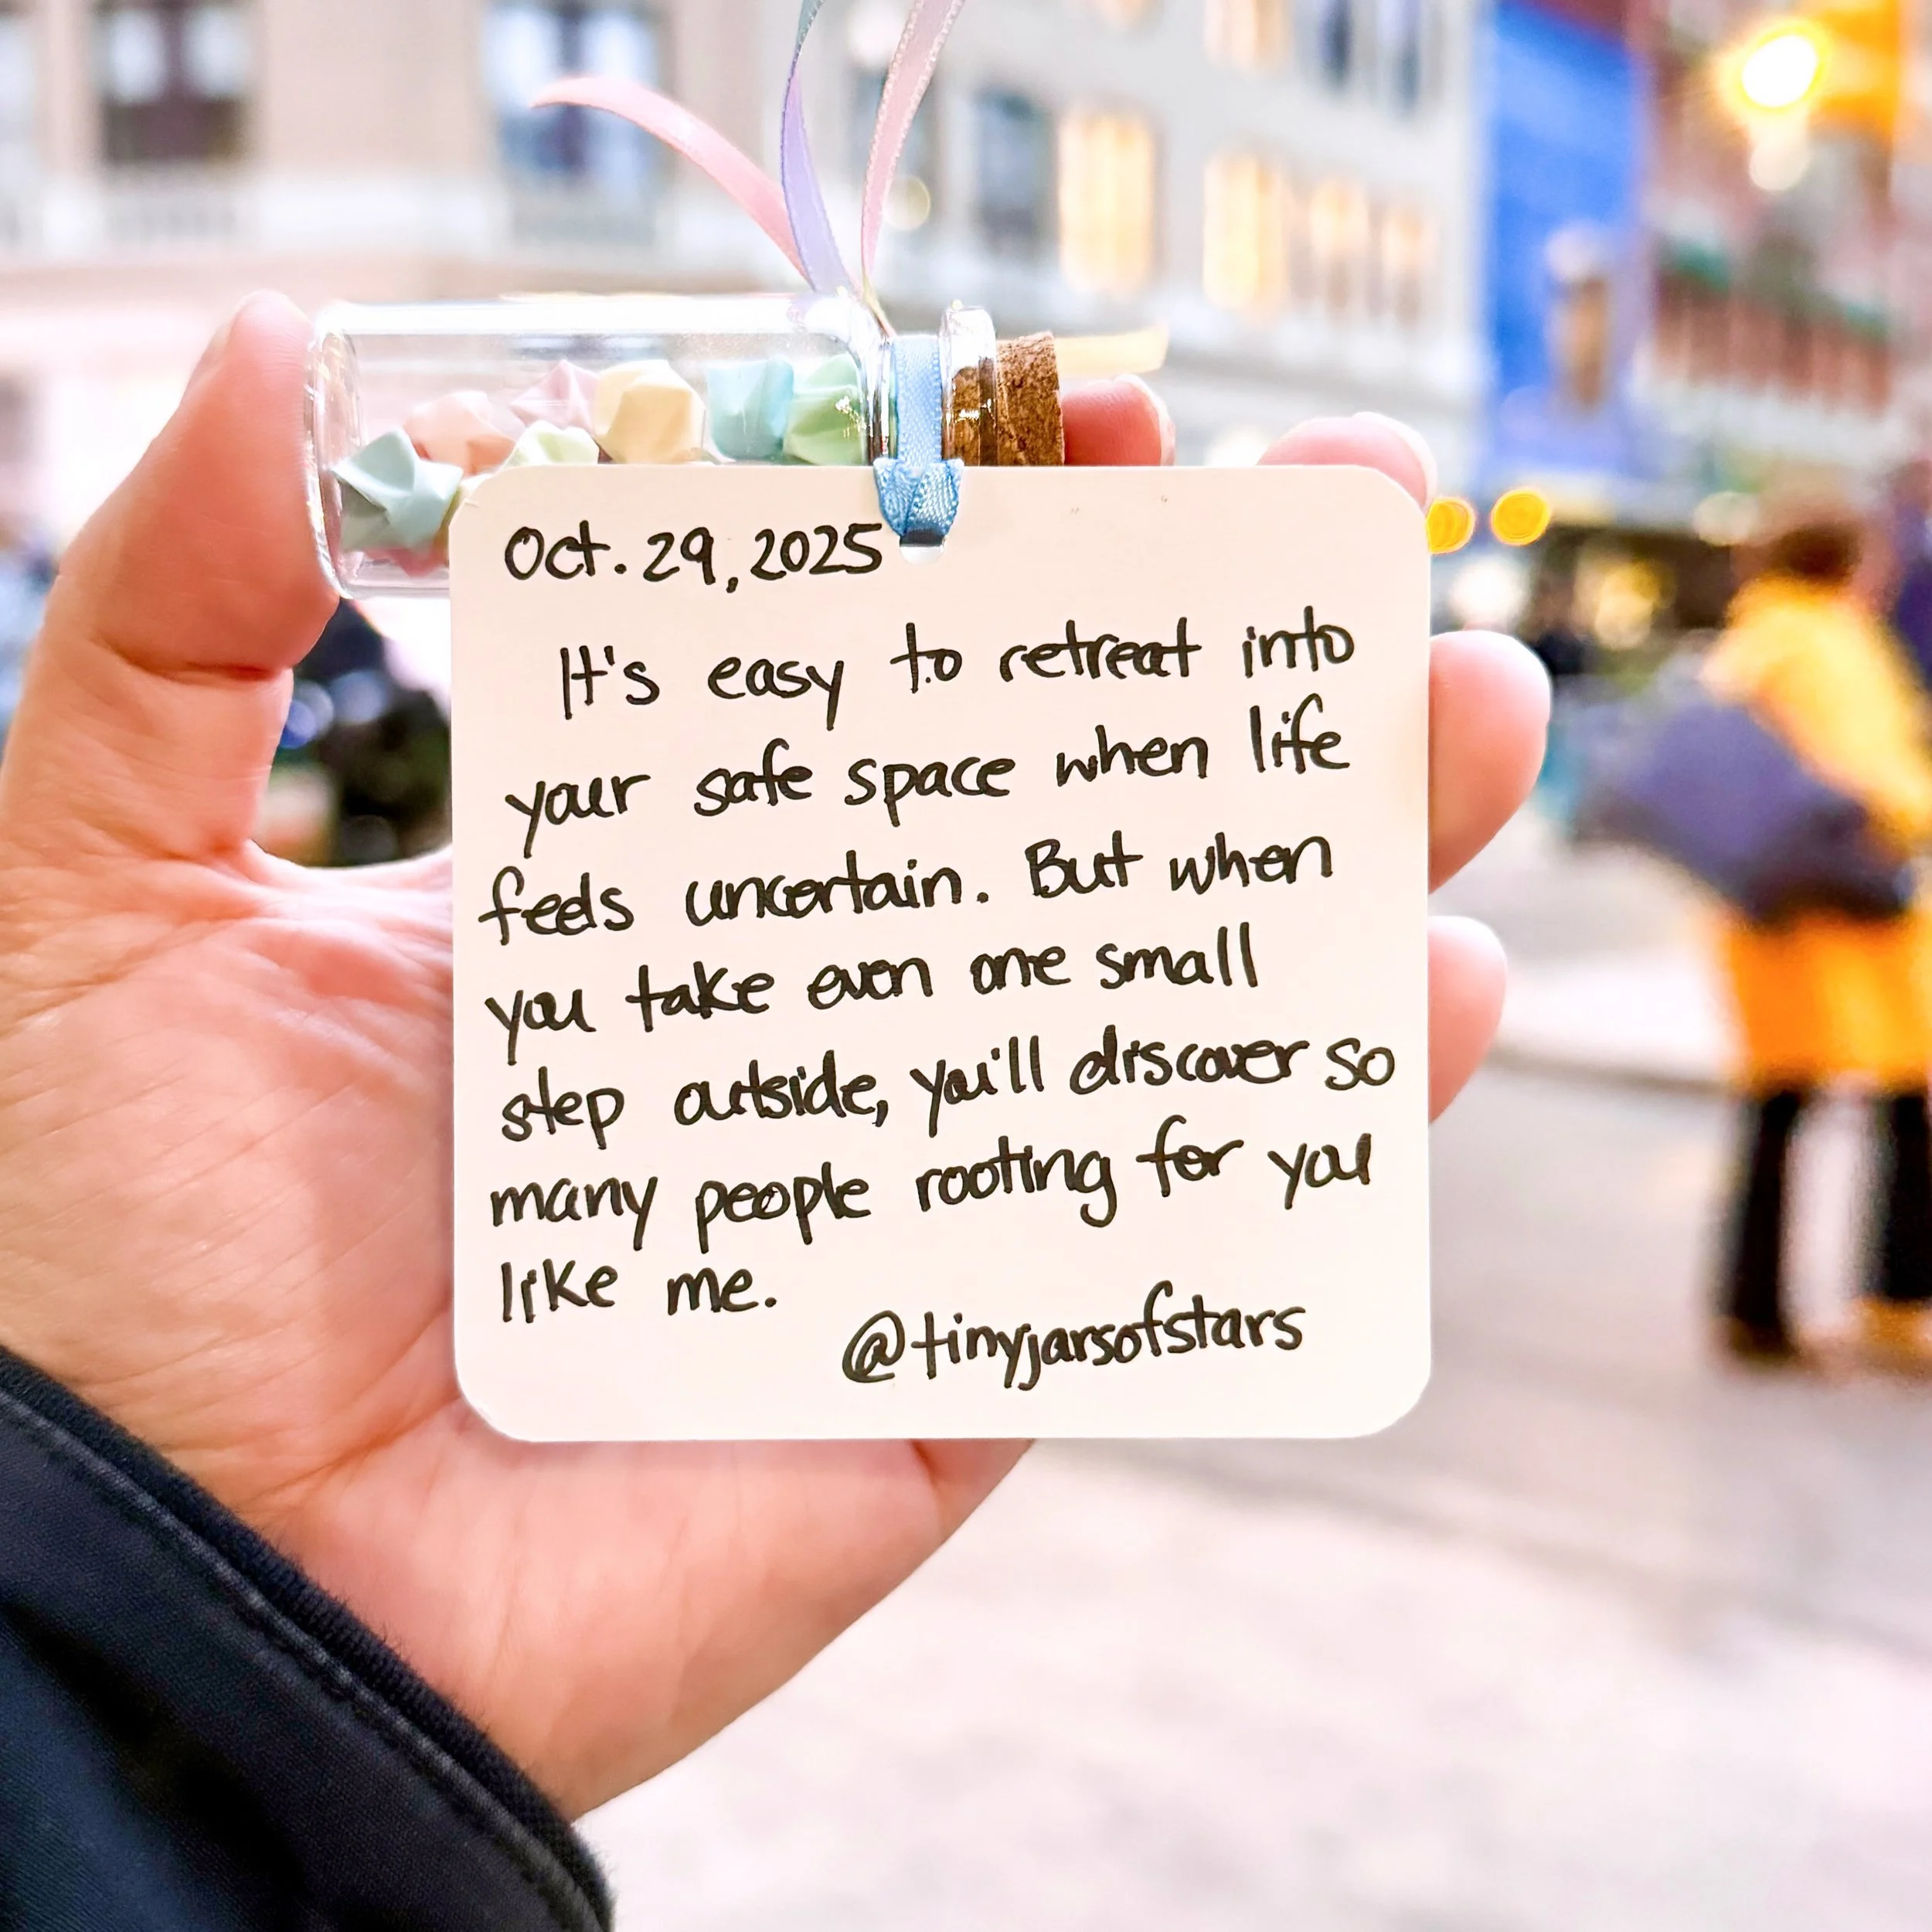 Oct. 29, 2025
It's easy to retreat into
your safe space when life
feels uncertain. But when
you take even one small
step outside, you'll discover so
many people rooting for you
like me.
@tinyjarsofstars